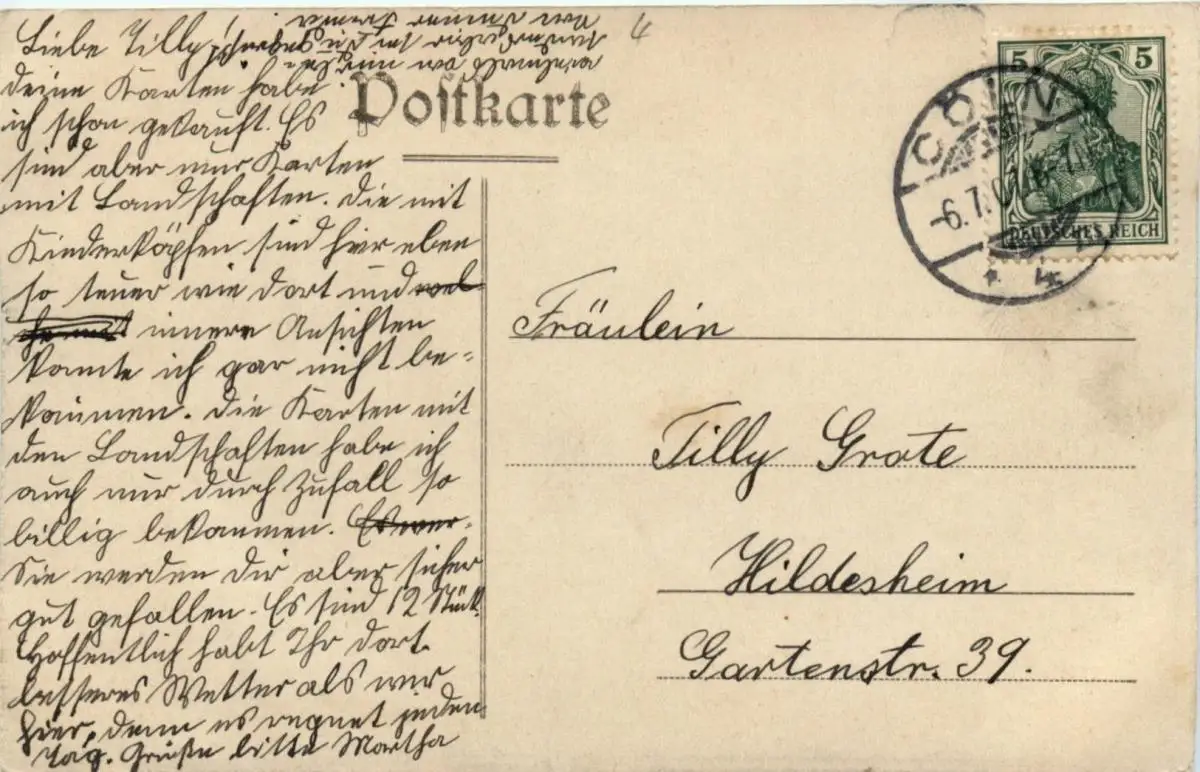 Liebe Tilly!
deine Karten habe
ich schon gekauft. Es
sind aber nur Karten
mit Landschaften. Die mit
Kinderköpfen sind hier eben
so teuer wie dort und
innere Ansichten
konnte ich gar nicht be-
kommen. Die Karten mit
den Landschaften habe ich
auch nur durch Zufall so
billig bekommen. Es wer-
Sie werden Dir aber sicher
gut gefallen. Es sind 12 Stück.
Hoffentlich habt Ihr dort
besseres Wetter als wir
hier, denn es regnet jeden
Tag. Grüße bitte Martha
Postkarte
4
5 5
DEUTSCHES REICH
CÖLN
-6.7.
Fräulein
Tilly Grote
Hildesheim
Gartenstr. 39.